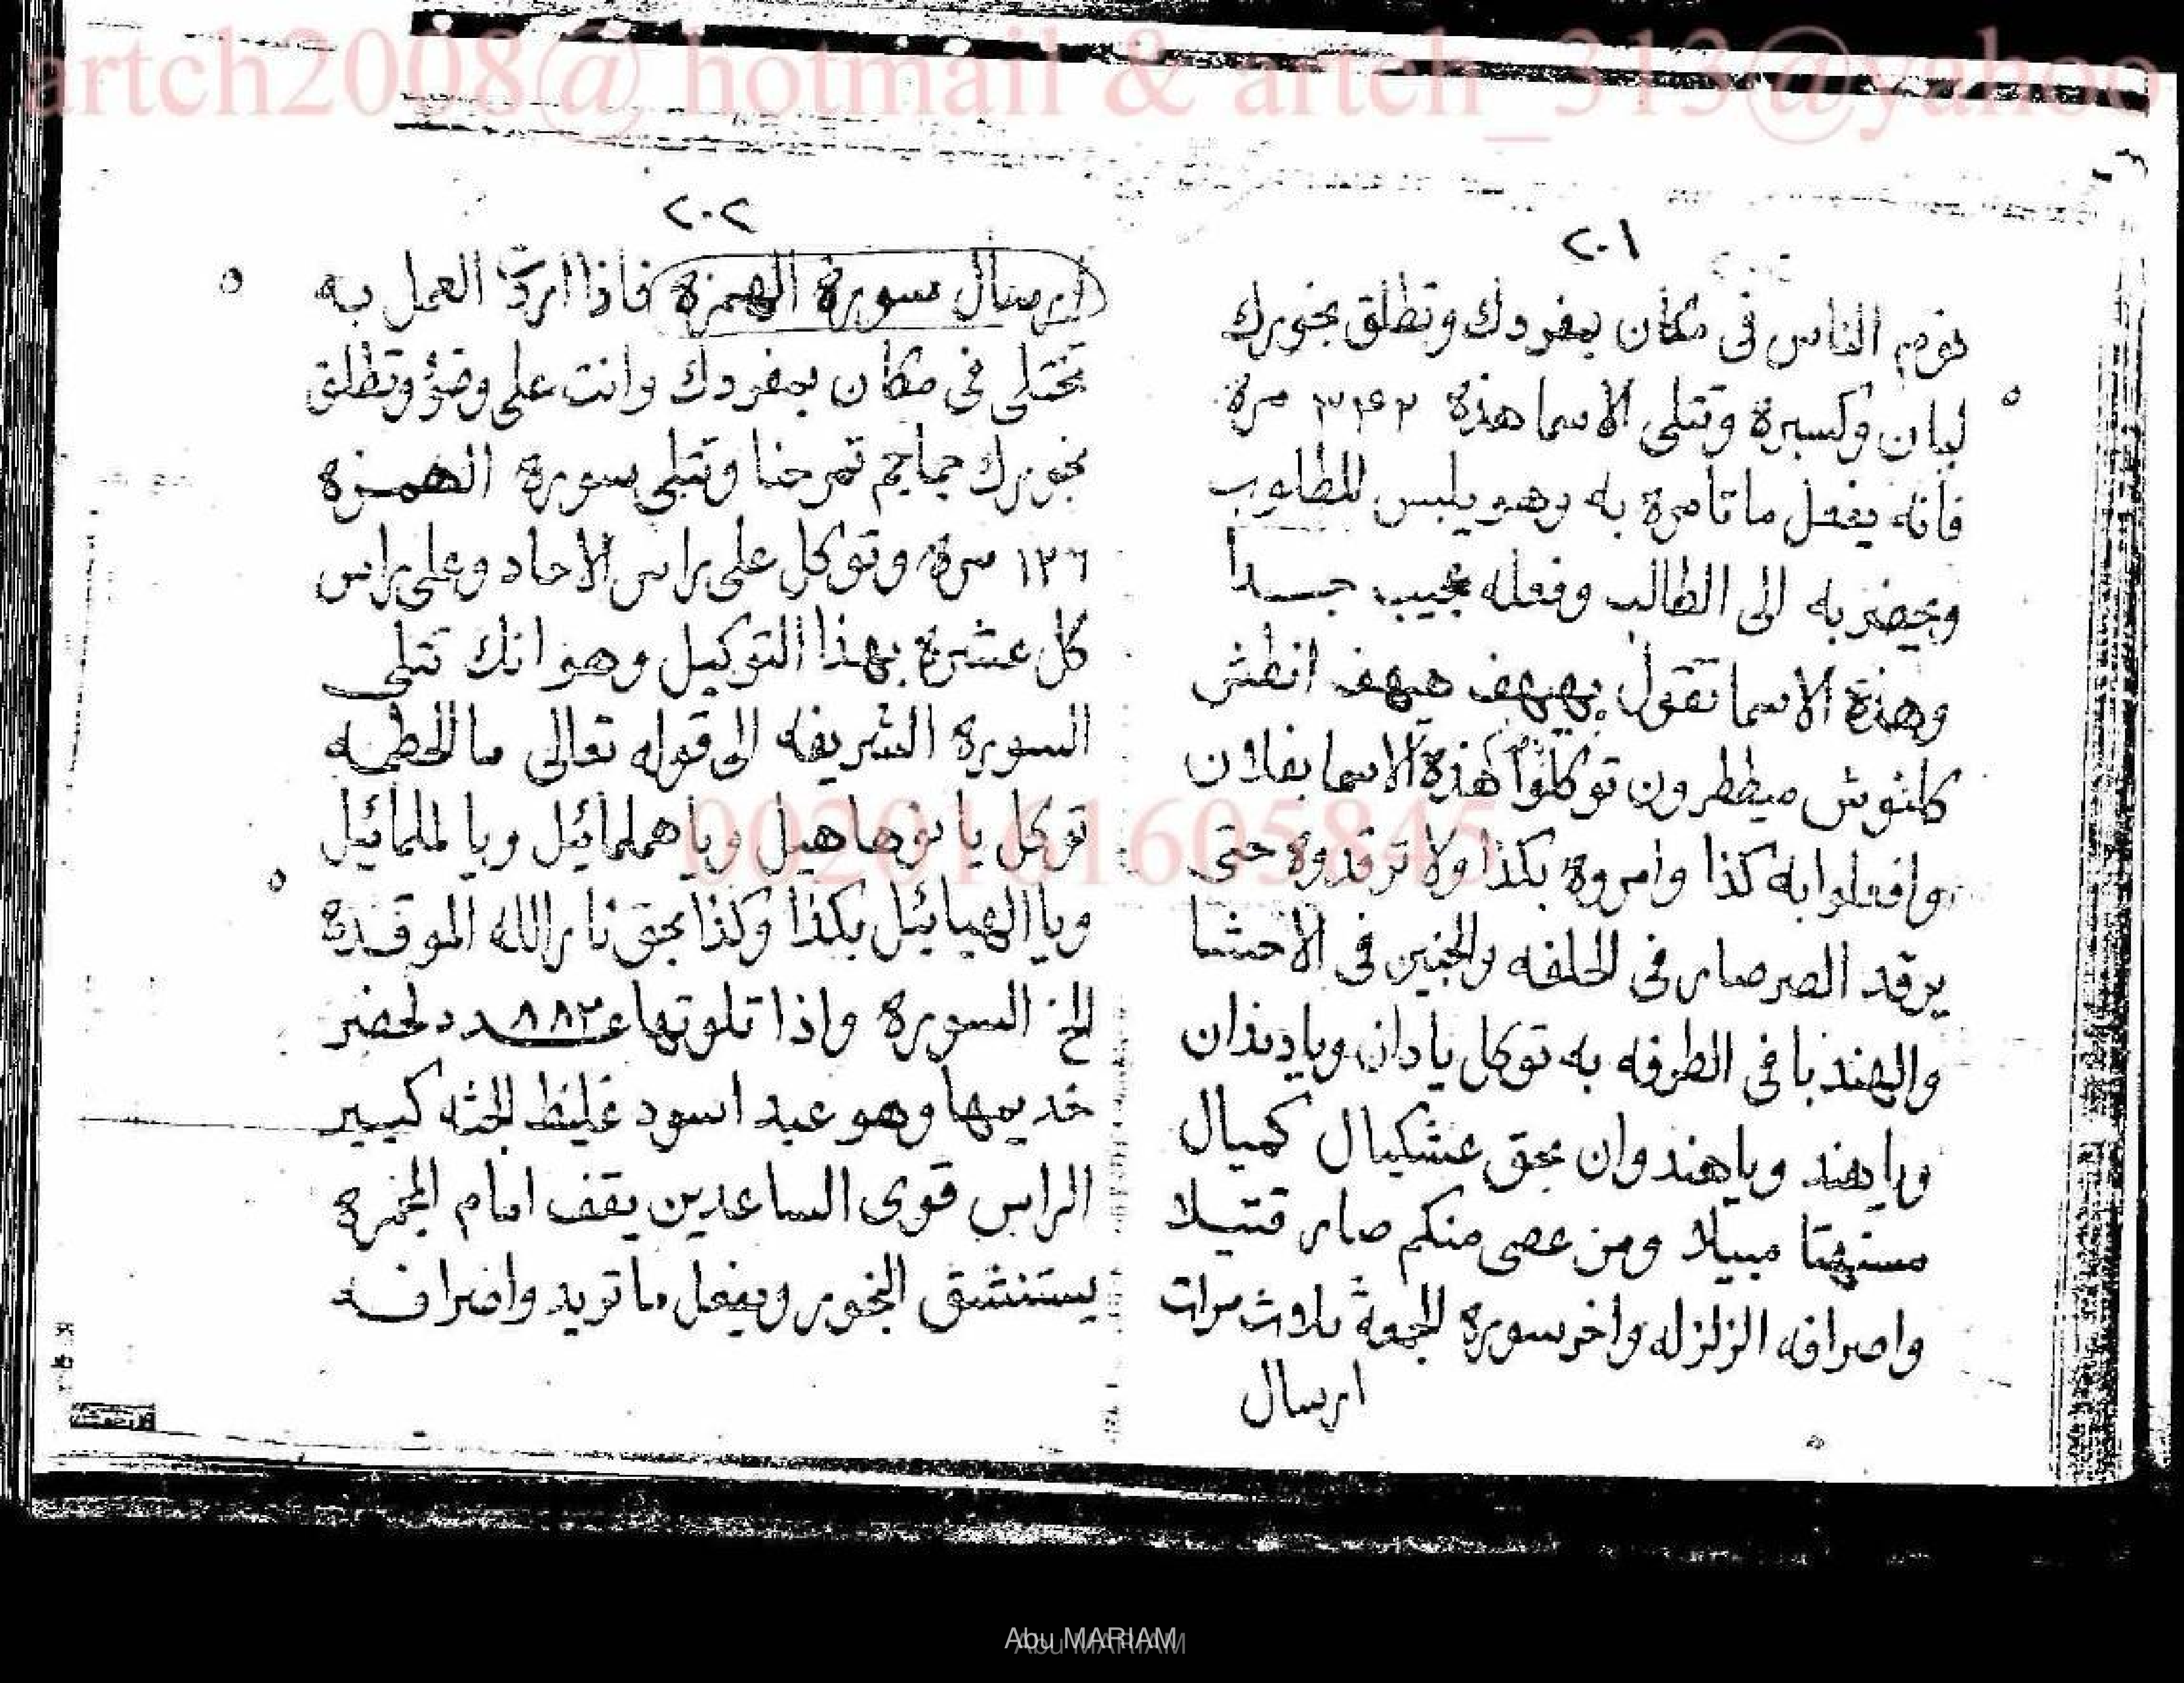 artch2008@ hotmail & artch_313@yahoo
٢٠١
نوم الناس فى مكان بمفردك وتطلق بخورك
لبان وكسبرة وتتلى الاسما هذة ٣٤٢ مرة
فانه يفعل ما تامرة به وهو يلبس للمطلوب
ويحضر به الى الطالب وفعله عجيب جــدا
وهذة الاسما تقول بهيهف هيهف انطش
كلثوش ميططرون توكلوا هذة الاسما بفلان
وافعلوا به كذا وامروة بكذا ولا ترقدوة حتى
يرقد الصرصار فى الحلفه والجنين فى الاحشا
والهندبا فى الطرفه به توكل يا دان ويا ديدان
ويا هند ويا هندوان بحق عشكيال كميال
مبيلا ومن عصى منكم صار قتيلا
واصرافه الزلزله واخر سورة الجمعة ثلاث مرات
ارسال
٢٠٢
ارسال سورة الهمزة فاذا اردت العمل به
تختلى فى مكان بمفردك وانت على وضؤ وتطلق
بخورك جماجم تمرحنا وتتلى سورة الهمـزة
١٢٦ مرة وتوكل على راس الاحاد وعلى راس
كل عشرة بهذا التوكيل وهو انك تتلى
السورة الشريفه الى قوله تعالى ما الحطمـه
توكل يا نوهاهيل ويا هملمائيل ويا لملمائيل
ويا الهيائيل بكذا وكذا بحق نار الله الموقـدة
الخ السورة واذا تلوتها عـ٨٨٢ـدد لحضر
خديمها وهو عبد اسود غليظ الجثه كبيـر
الراس قوى الساعدين يقف امام المجمرة
يستنشق البخور ويفعل ما تريد واصرافـه
0020161605845
Abu MARIAM
Abu MARIAM